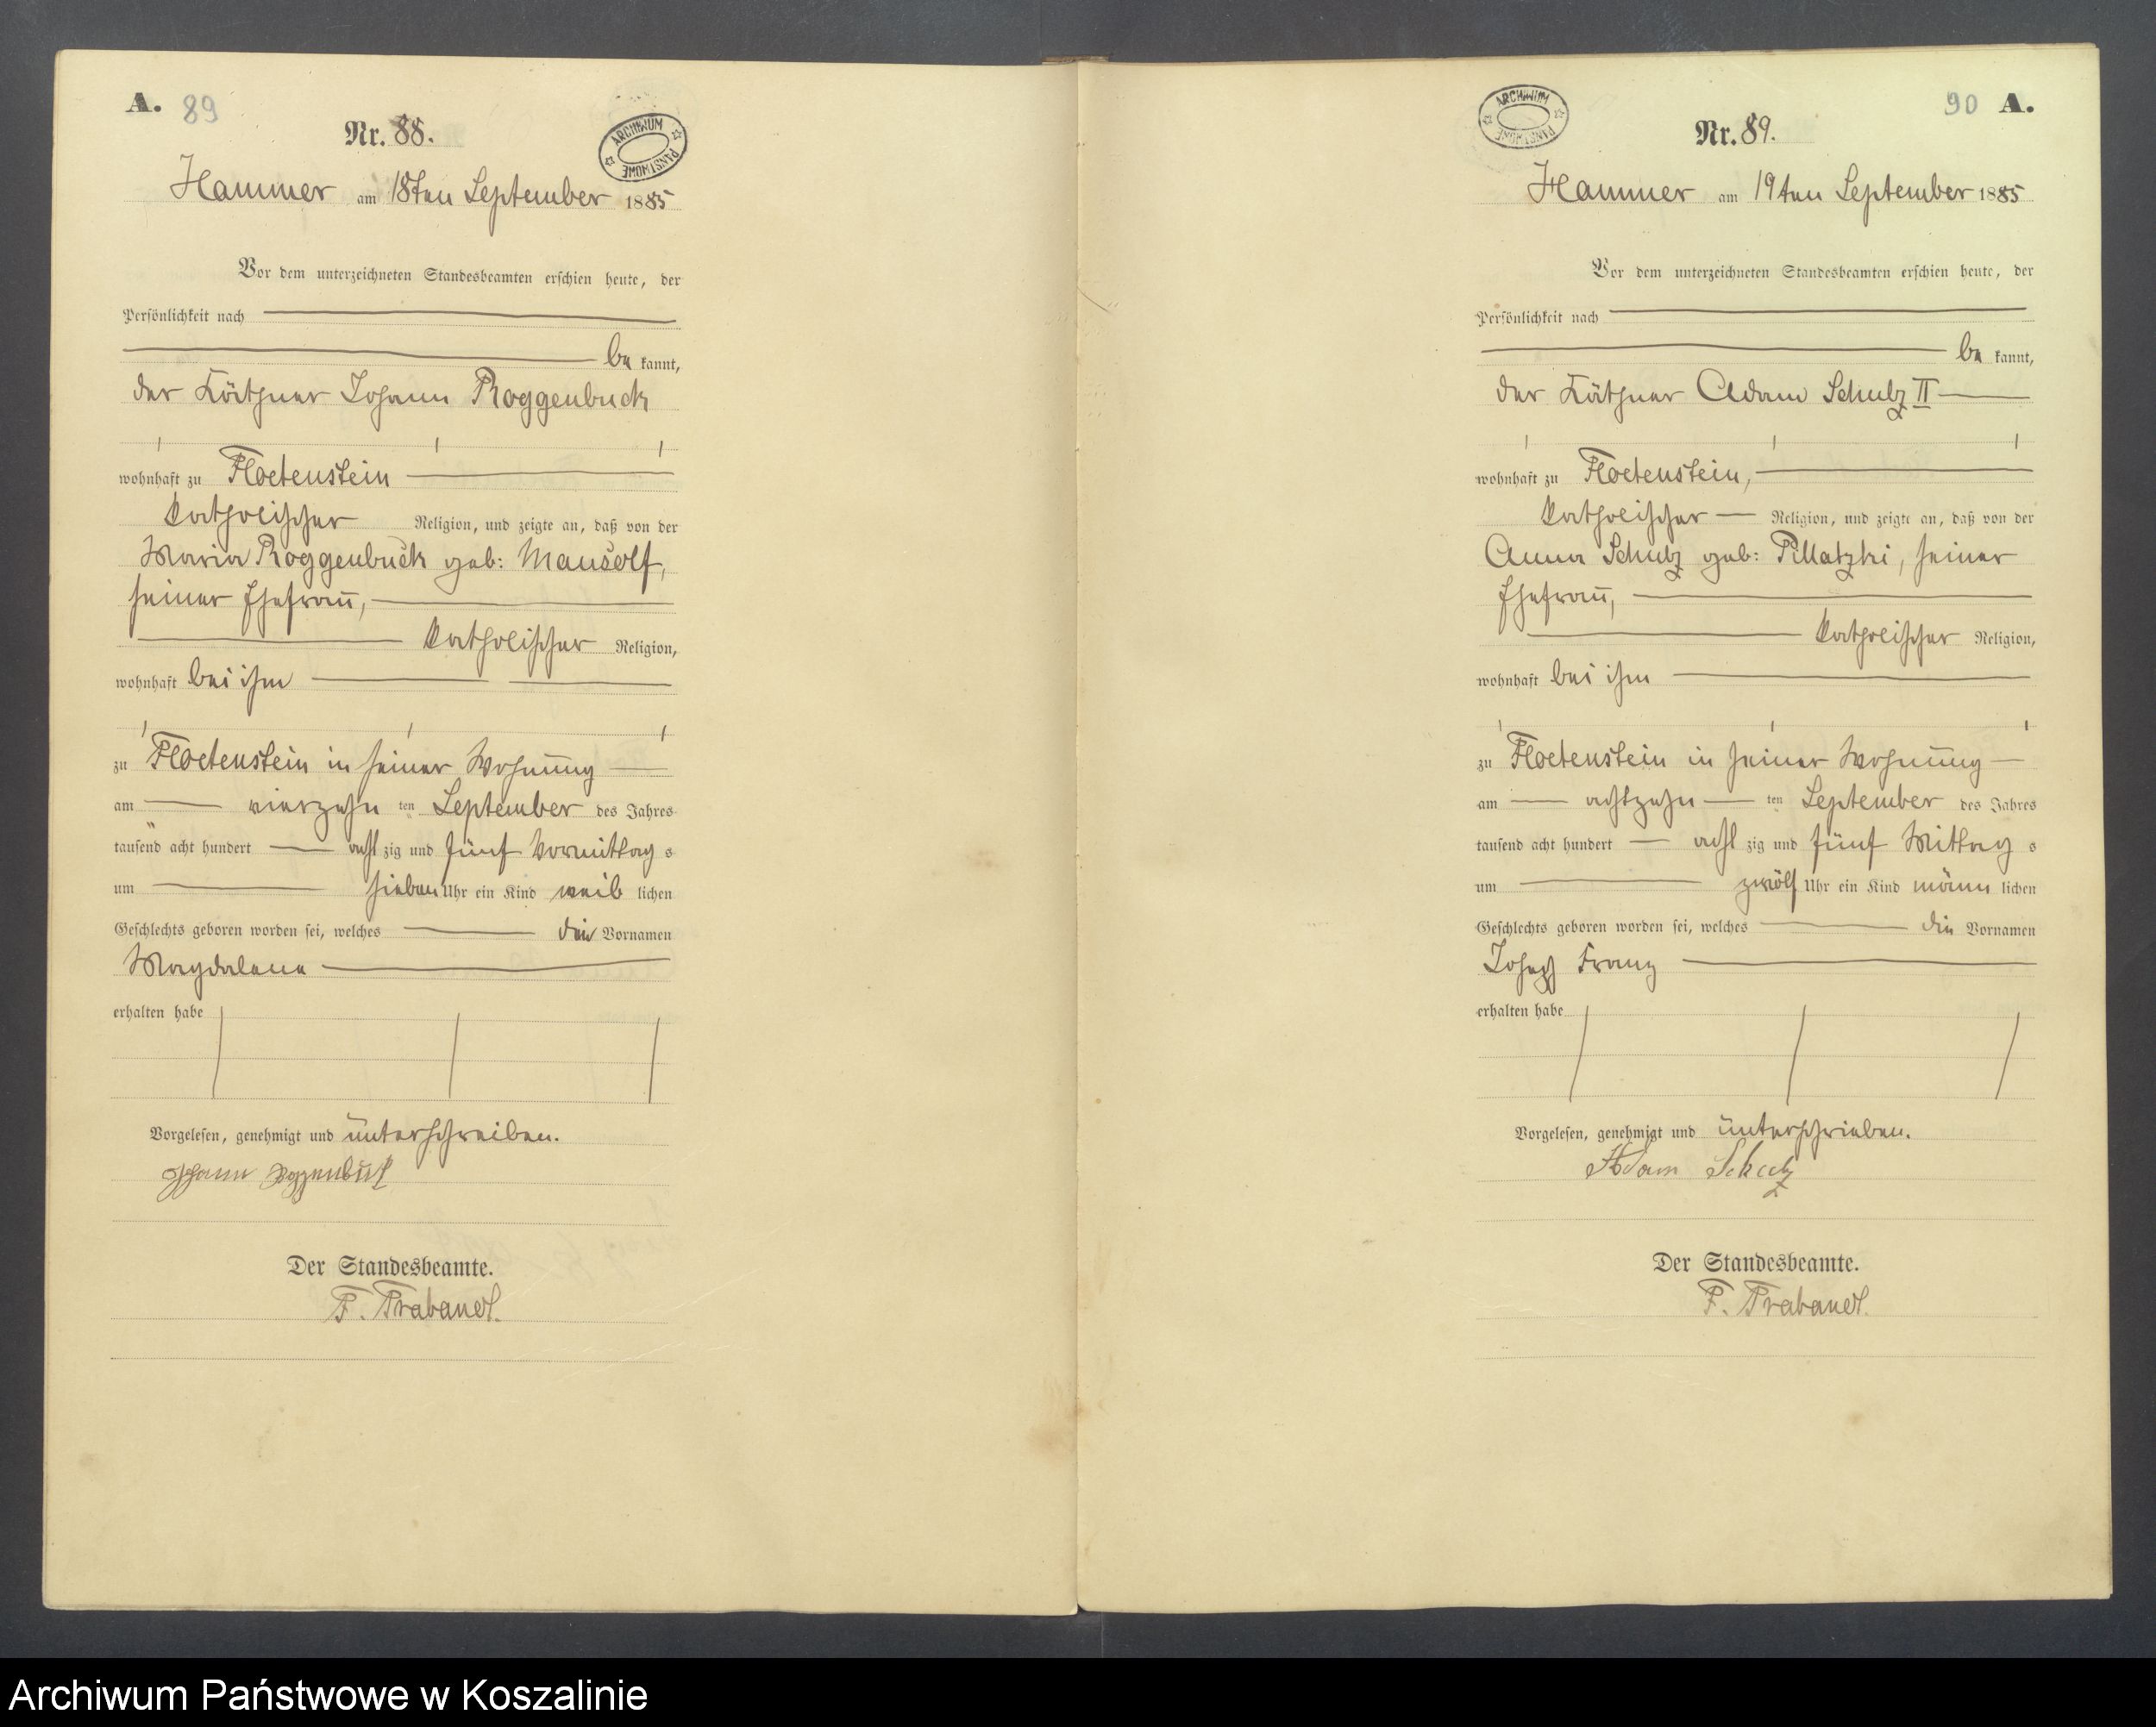 A. 89
Nr. 88.
ARCHIWUM PAŃSTWOWE
Hammer am 18ten September 1885
Vor dem unterzeichneten Standesbeamten erschien heute, der
Persönlichkeit nach
be kannt,
der Käthner Johann Roggenbuck
wohnhaft zu Floetenstein
katholischer Religion, und zeigte an, daß von der
Maria Roggenbuck geb: Mausolf,
seiner Ehefrau,
katholischer Religion,
wohnhaft bei ihm
zu Floetenstein in seiner Wohnung
am vierzehn ten September des Jahres
tausend acht hundert acht zig und fünf Vormittag s
um sieben Uhr ein Kind weib lichen
Geschlechts geboren worden sei, welches die Vornamen
Magdalena
erhalten habe
Vorgelesen, genehmigt und unterschreiben.
Johann Roggenbuck
Der Standesbeamte.
F. Trabandt.
90 A.
Nr. 89.
ARCHIWUM PAŃSTWOWE
Hammer am 19ten September 1885
Vor dem unterzeichneten Standesbeamten erschien heute, der
Persönlichkeit nach
be kannt,
der Käthner Adam Schulz II
wohnhaft zu Floetenstein,
katholischer Religion, und zeigte an, daß von der
Anna Schulz geb: Pillatzki, seiner
Ehefrau,
katholischer Religion,
wohnhaft bei ihm
zu Floetenstein in seiner Wohnung
am achtzehn ten September des Jahres
tausend acht hundert acht zig und fünf Mittag s
um zwölf Uhr ein Kind männ lichen
Geschlechts geboren worden sei, welches die Vornamen
Joseph Franz
erhalten habe
Vorgelesen, genehmigt und unterschrieben.
Adam Schulz
Der Standesbeamte.
F. Trabandt.
Archiwum Państwowe w Koszalinie